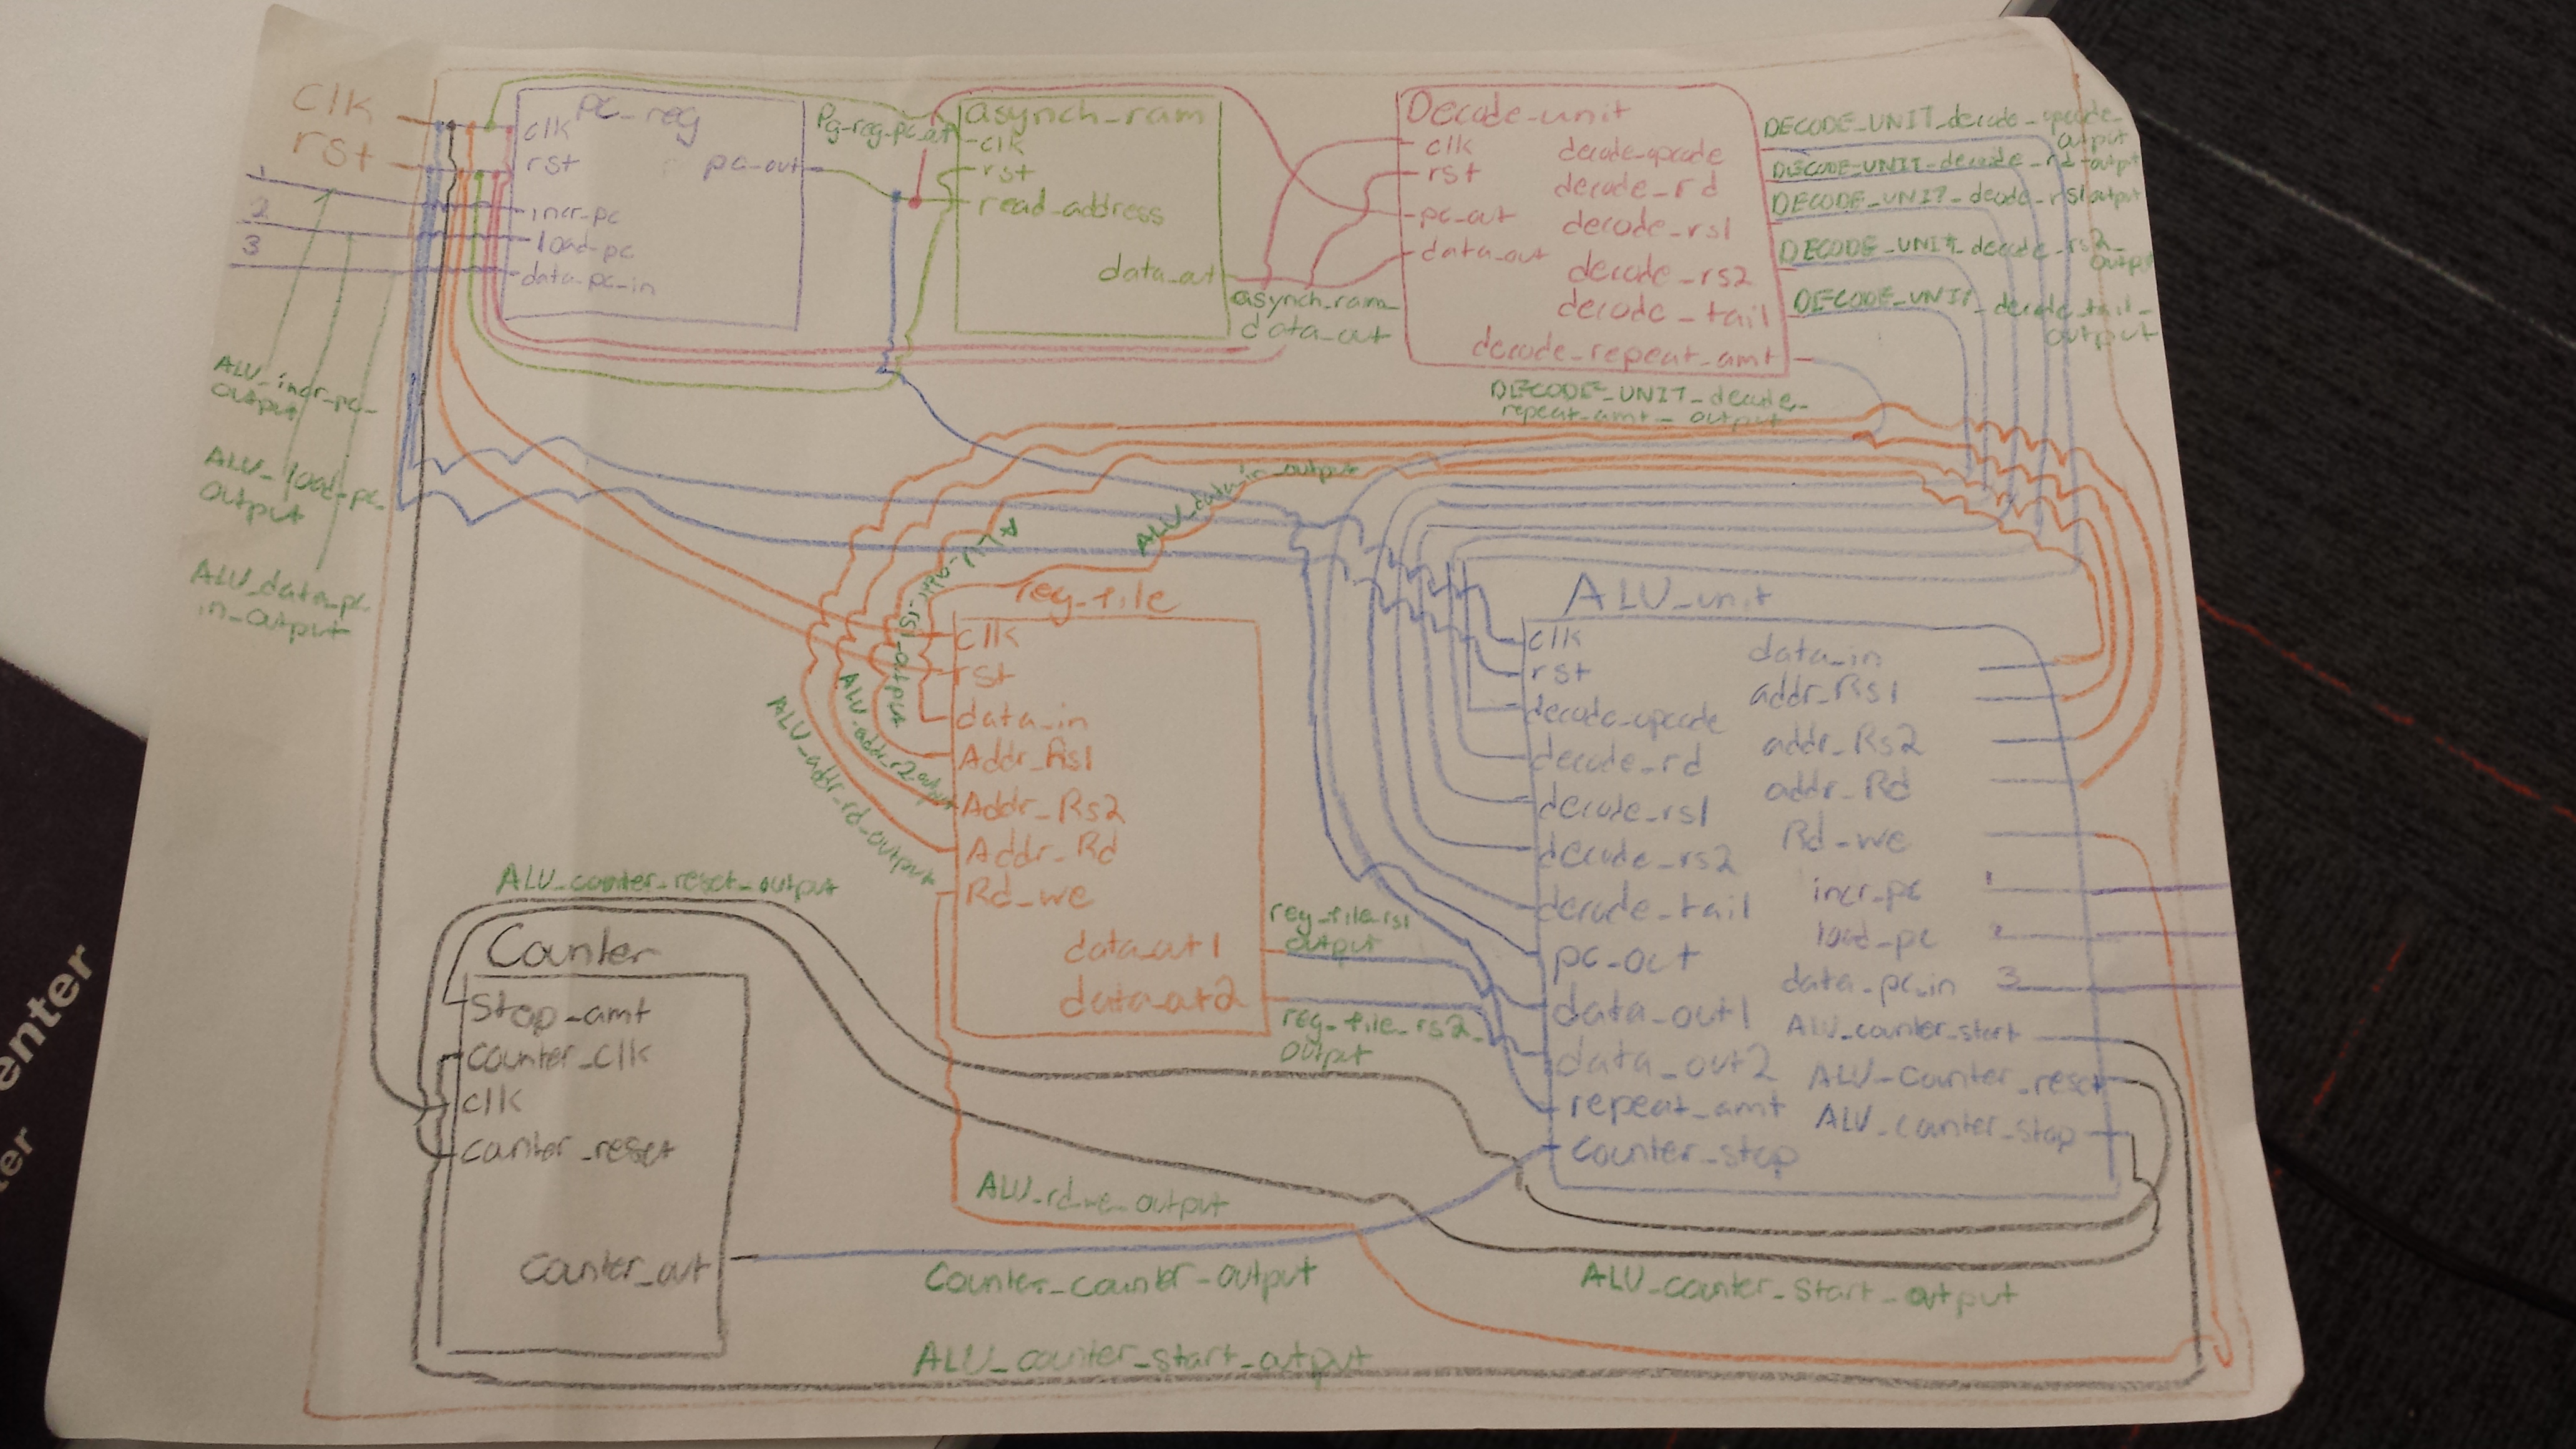 Clk
rst
1
2
3
PC_reg
clk
rst
incr_pc
load_pc
data_pc_in
pc_out
Pg-reg-pc_out
asynch_ram
clk
rst
read_address
data_out
asynch_ram_
data_out
Decode-unit
clk
rst
pc_out
data_out
decode_opcode
decode_rd
decode_rs1
decode_rs2
decode_tail
decode_repeat_amt
DECODE_UNIT_decode_opcode_
output
DECODE_UNIT_decode_rd_output
DECODE_UNIT_decode_rs1output
DECODE_UNIT_decode_rs2_
output
DECODE_UNIT_decode_tail_
output
DECODE_UNIT_decode_
repeat_amt_output
ALU_incr_pc_
output
ALU_load_pc_
output
ALU_data_pc_
in_output
ALU_data_in_output
ALU_addr_rs1_output
ALU_addr_r2_output
ALU_addr_rd_output
reg_file
clk
rst
data_in
Addr_Rs1
Addr_Rs2
Addr_Rd
Rd_we
data_out1
data_out2
reg_file_rs1
output
reg_file_rs2_
output
ALU_unit
clk
rst
decode_opcode
decode_rd
decode_rs1
decode_rs2
decode_tail
pc_out
data_out1
data_out2
repeat_amt
counter_stop
data_in
addr_Rs1
addr_Rs2
addr_Rd
Rd_we
incr_pc 1
load_pc 2
data_pc_in 3
ALU_counter_start
ALU_counter_reset
ALU_counter_stop
ALU_counter_reset_output
Counter
Stop_amt
counter_clk
clk
counter_reset
Counter_out
ALU_rd_we_output
Counter_counter_output
ALU_counter_start_output
ALU_counter_start_output
enter
ter